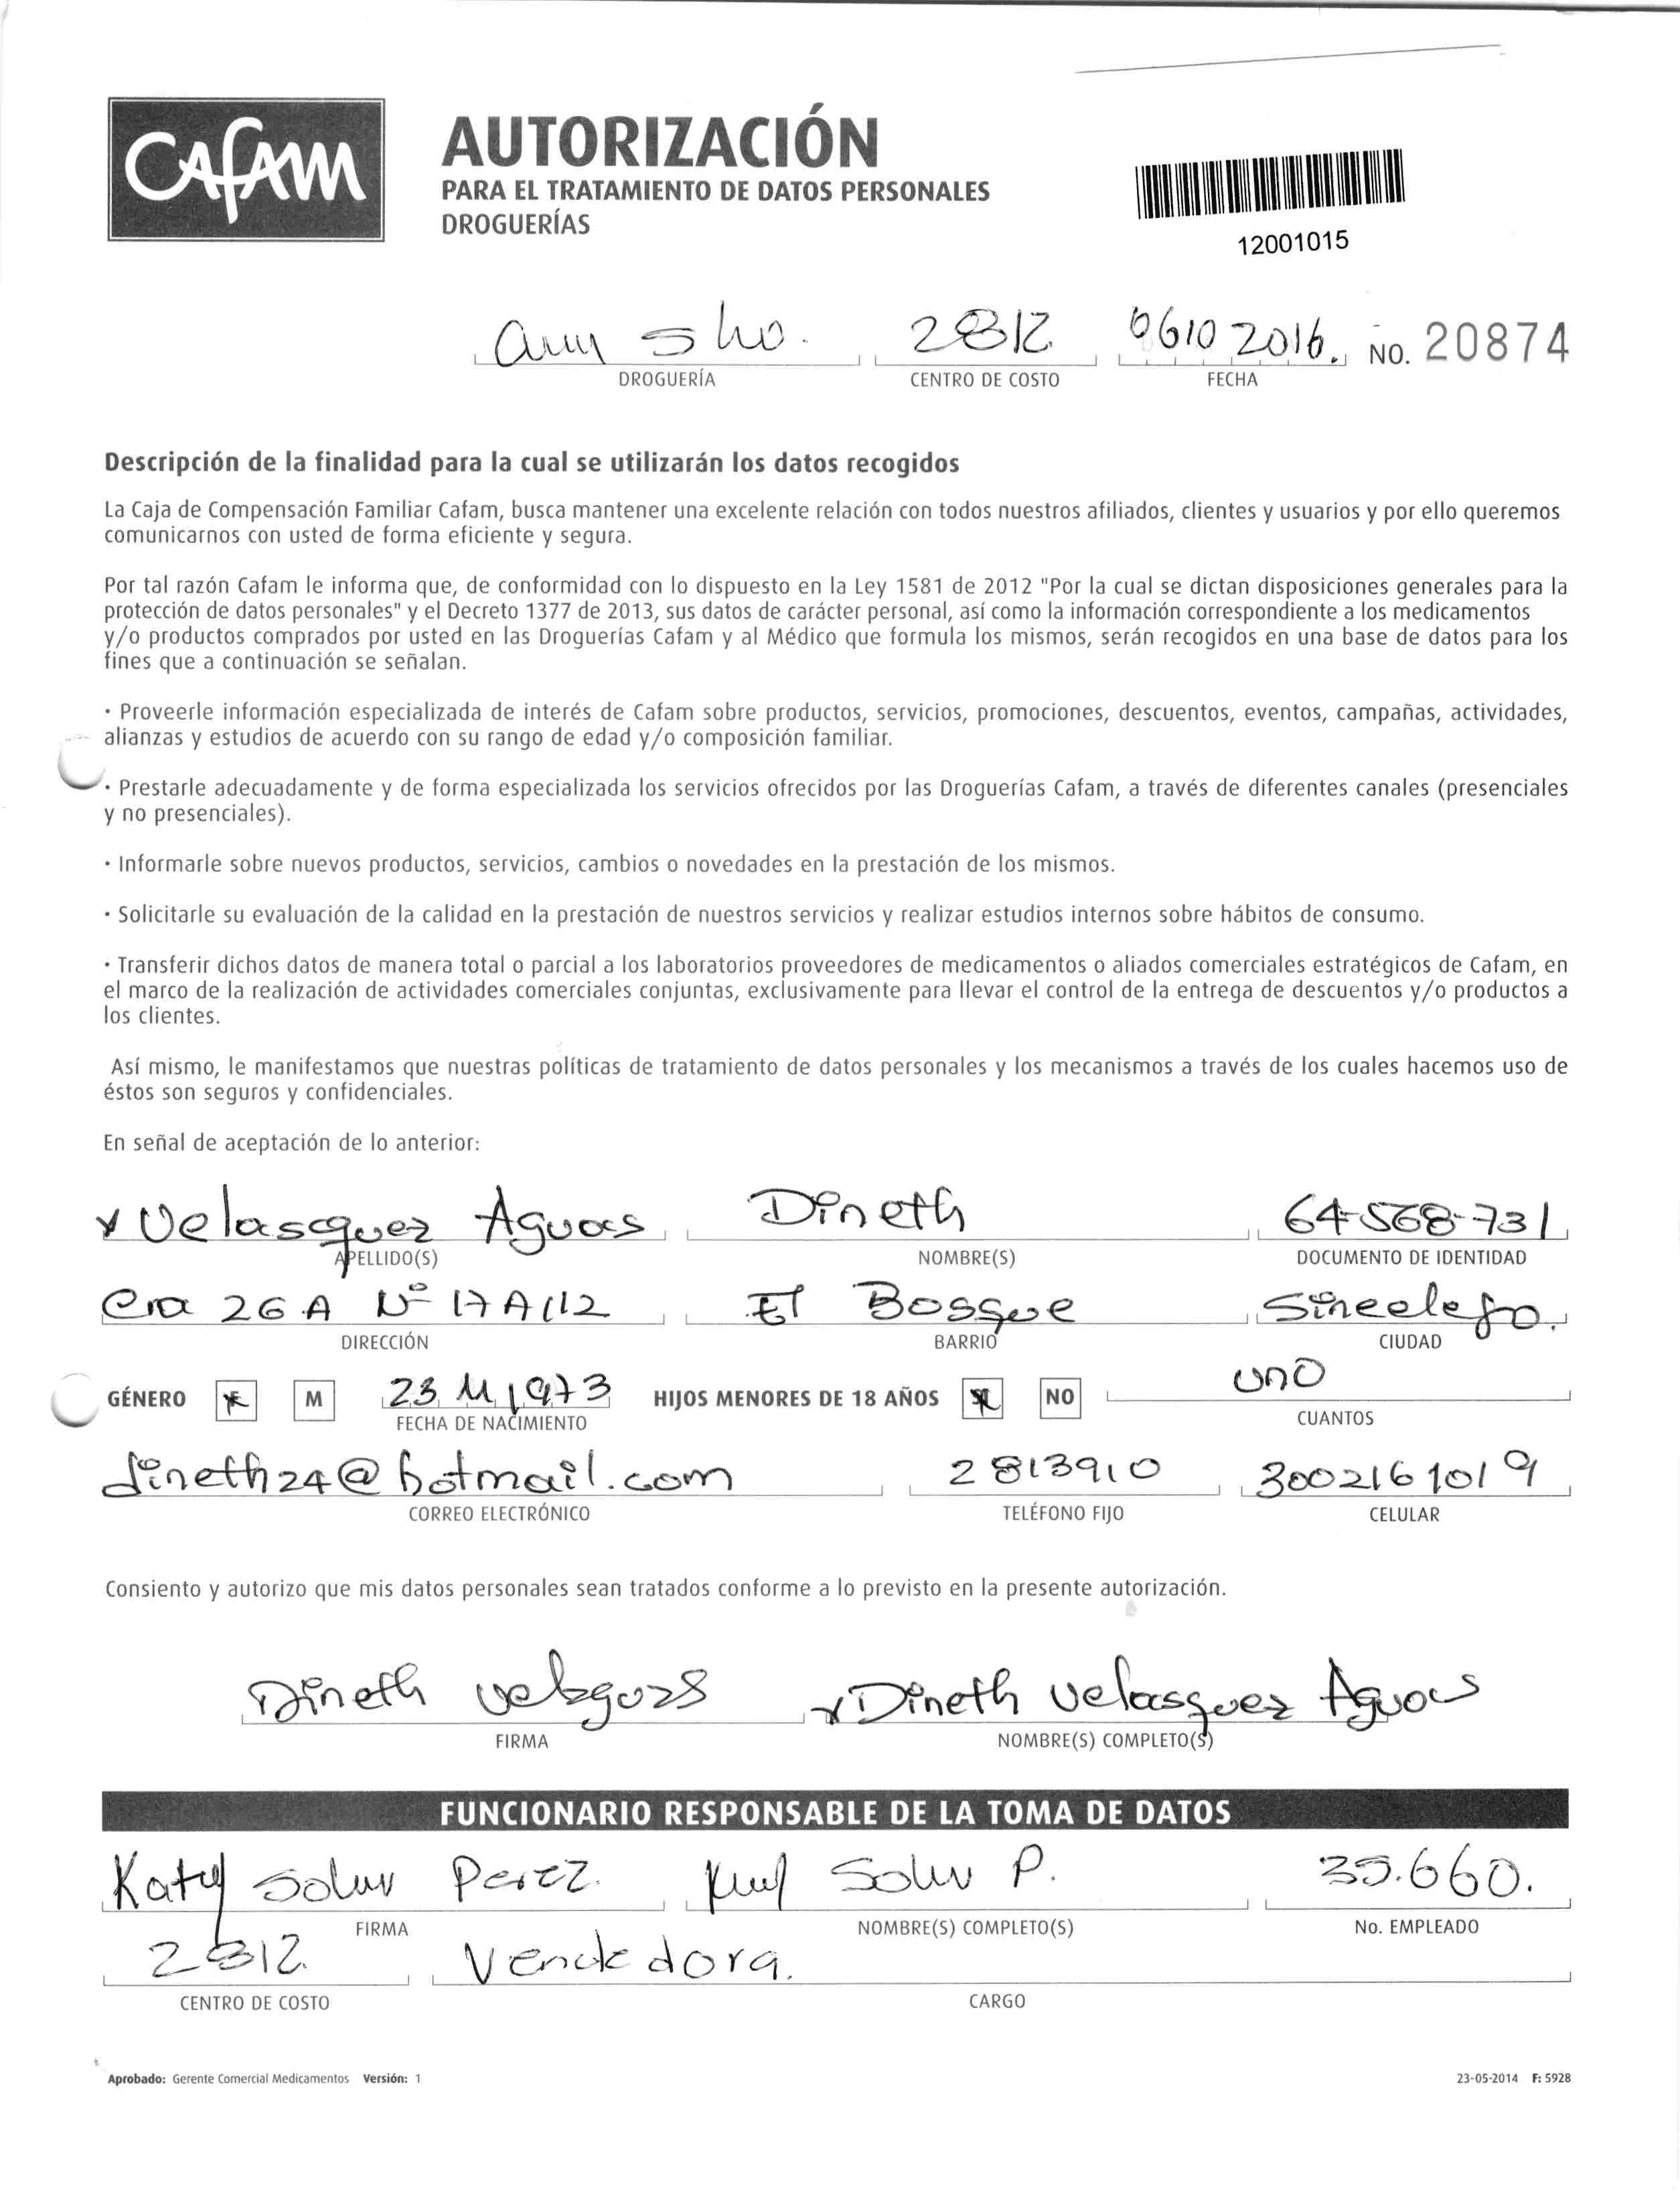 CAFAM
AUTORIZACIÓN
PARA EL TRATAMIENTO DE DATOS PERSONALES
DROGUERÍAS
12001015
2812 06 10 2016. NO. 20874
DROGUERÍA CENTRO DE COSTO FECHA
Descripción de la finalidad para la cual se utilizarán los datos recogidos
La Caja de Compensación Familiar Cafam, busca mantener una excelente relación con todos nuestros afiliados, clientes y usuarios y por ello queremos
comunicarnos con usted de forma eficiente y segura.
Por tal razón Cafam le informa que, de conformidad con lo dispuesto en la Ley 1581 de 2012 "Por la cual se dictan disposiciones generales para la
protección de datos personales" y el Decreto 1377 de 2013, sus datos de carácter personal, así como la información correspondiente a los medicamentos
y/o productos comprados por usted en las Droguerías Cafam y al Médico que formula los mismos, serán recogidos en una base de datos para los
fines que a continuación se señalan.
· Proveerle información especializada de interés de Cafam sobre productos, servicios, promociones, descuentos, eventos, campañas, actividades,
alianzas y estudios de acuerdo con su rango de edad y/o composición familiar.
· Prestarle adecuadamente y de forma especializada los servicios ofrecidos por las Droguerías Cafam, a través de diferentes canales (presenciales
y no presenciales).
· Informarle sobre nuevos productos, servicios, cambios o novedades en la prestación de los mismos.
· Solicitarle su evaluación de la calidad en la prestación de nuestros servicios y realizar estudios internos sobre hábitos de consumo.
· Transferir dichos datos de manera total o parcial a los laboratorios proveedores de medicamentos o aliados comerciales estratégicos de Cafam, en
el marco de la realización de actividades comerciales conjuntas, exclusivamente para llevar el control de la entrega de descuentos y/o productos a
los clientes.
Así mismo, le manifestamos que nuestras políticas de tratamiento de datos personales y los mecanismos a través de los cuales hacemos uso de
éstos son seguros y confidenciales.
En señal de aceptación de lo anterior:
x Velasquez Aguas Dineth 64-568-731
APELLIDO(S) NOMBRE(S) DOCUMENTO DE IDENTIDAD
Cra 26 A Nº 17 A 112 El Bosque Sincelejo.
DIRECCIÓN BARRIO CIUDAD
GÉNERO F M 23 11 1973 HIJOS MENORES DE 18 AÑOS NO uno
FECHA DE NACIMIENTO CUANTOS
dineth24@hotmail.com 2813910 3002161019
CORREO ELECTRÓNICO TELÉFONO FIJO CELULAR
Consiento y autorizo que mis datos personales sean tratados conforme a lo previsto en la presente autorización.
Dineth x Dineth Velasquez Aguas
FIRMA NOMBRE(S) COMPLETO(S)
FUNCIONARIO RESPONSABLE DE LA TOMA DE DATOS
Katy Perez. P. 35.660.
FIRMA NOMBRE(S) COMPLETO(S) No. EMPLEADO
2812. Vendedora.
CENTRO DE COSTO CARGO
Aprobado: Gerente Comercial Medicamentos Versión: 1 23-05-2014 F: 5928